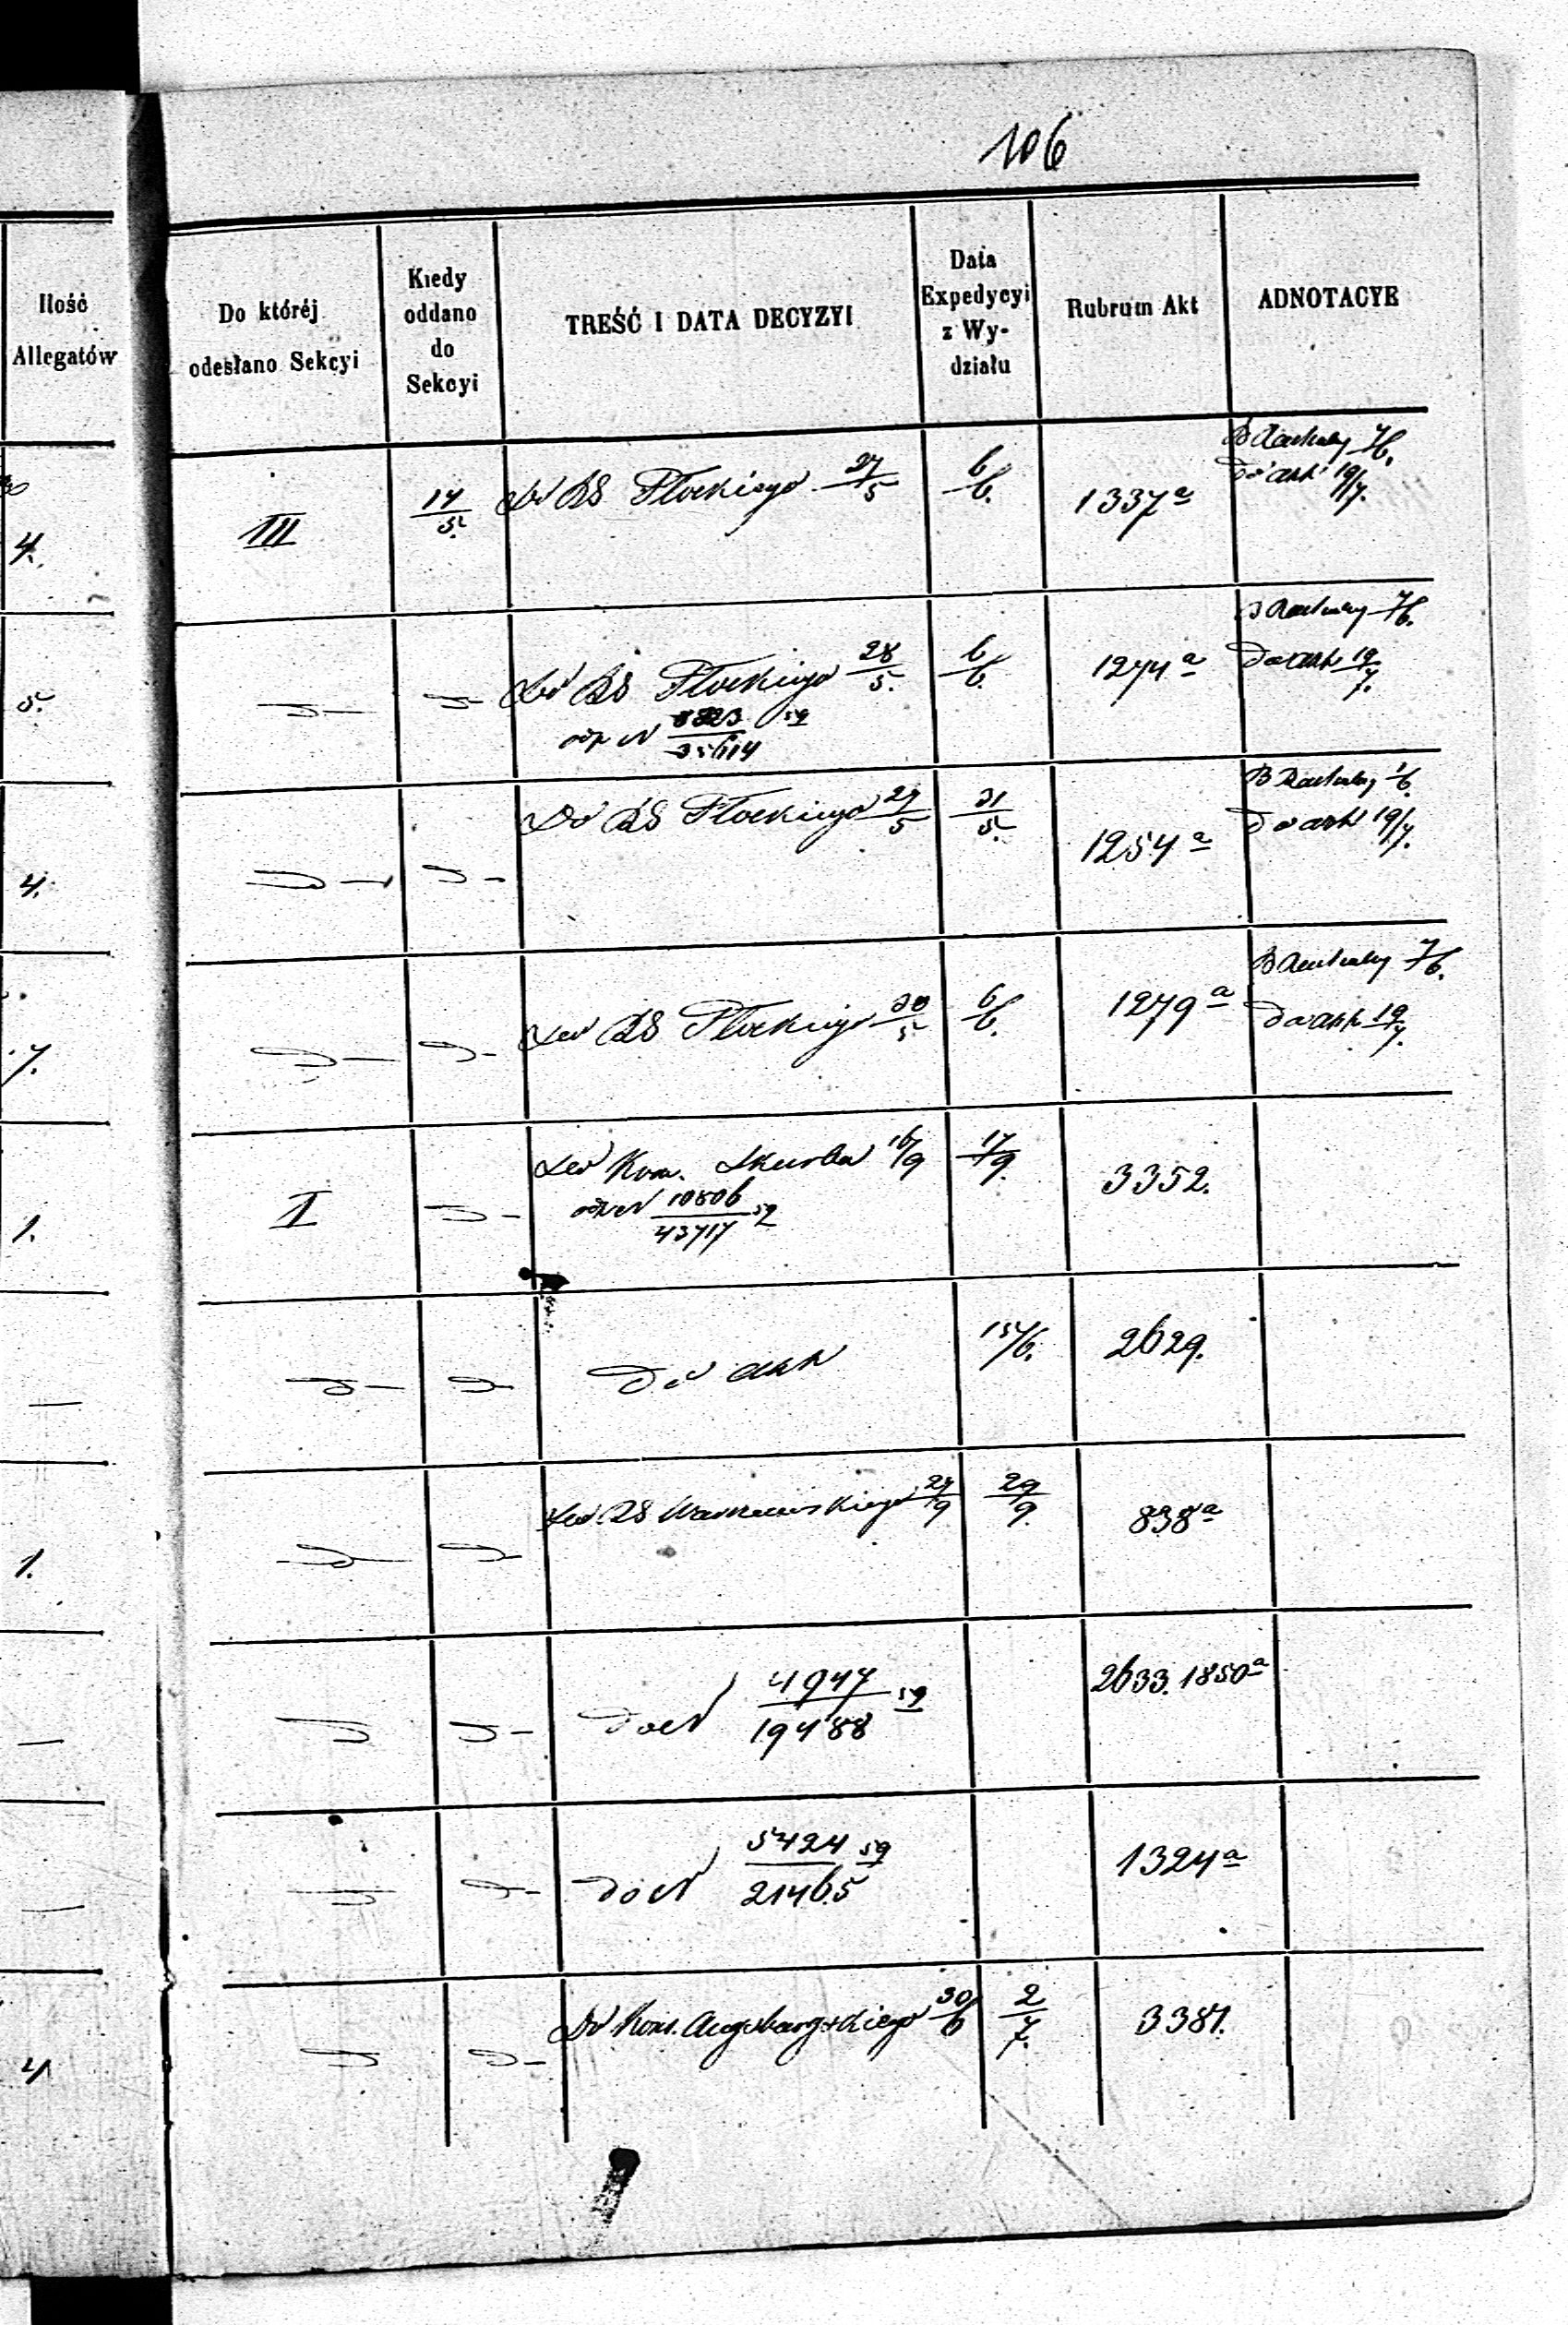 106
Ilość
Allegatów
Do któréj
odesłano Sekcyi
Kiedy
oddano
do
Sekcyi
TREŚĆ I DATA DECYZYI
Data
Expedycyi
z Wy-
działu
Rubrum Akt
ADNOTACYE
4. III 17/5. Do RS Płockiego 27/5 6/6. 1337a 7/6.
Do akt 19/7.
5. D — D — Do RS Płockiego 28/5. 6/6. 1274a 7/6.
odp N 59 Do akt 19/7.
4. D — D — Do RS Płockiego 29/5 31/5. 1254a 1/6.
Do akt 19/7.
7. D — D — Do RS Płockiego 30/5 6/6. 1279a 7/6.
Do akt 19/7.
1. I D — Do Kom. Skarbu 16/9 17/9. 3352.
odp N 10806/43717 59
— D — D — Do akt 15/6. 2629.
1. D — D — Do RS Warszawskiego 27/9 29/9. 838a
— D D — Do N 4947/19488 59 2633. 1850a
— D D — Do N 5424/21465 59 1324a
4 D D — Do Kons. Augsburgskiego 30/6 2/7. 3381.